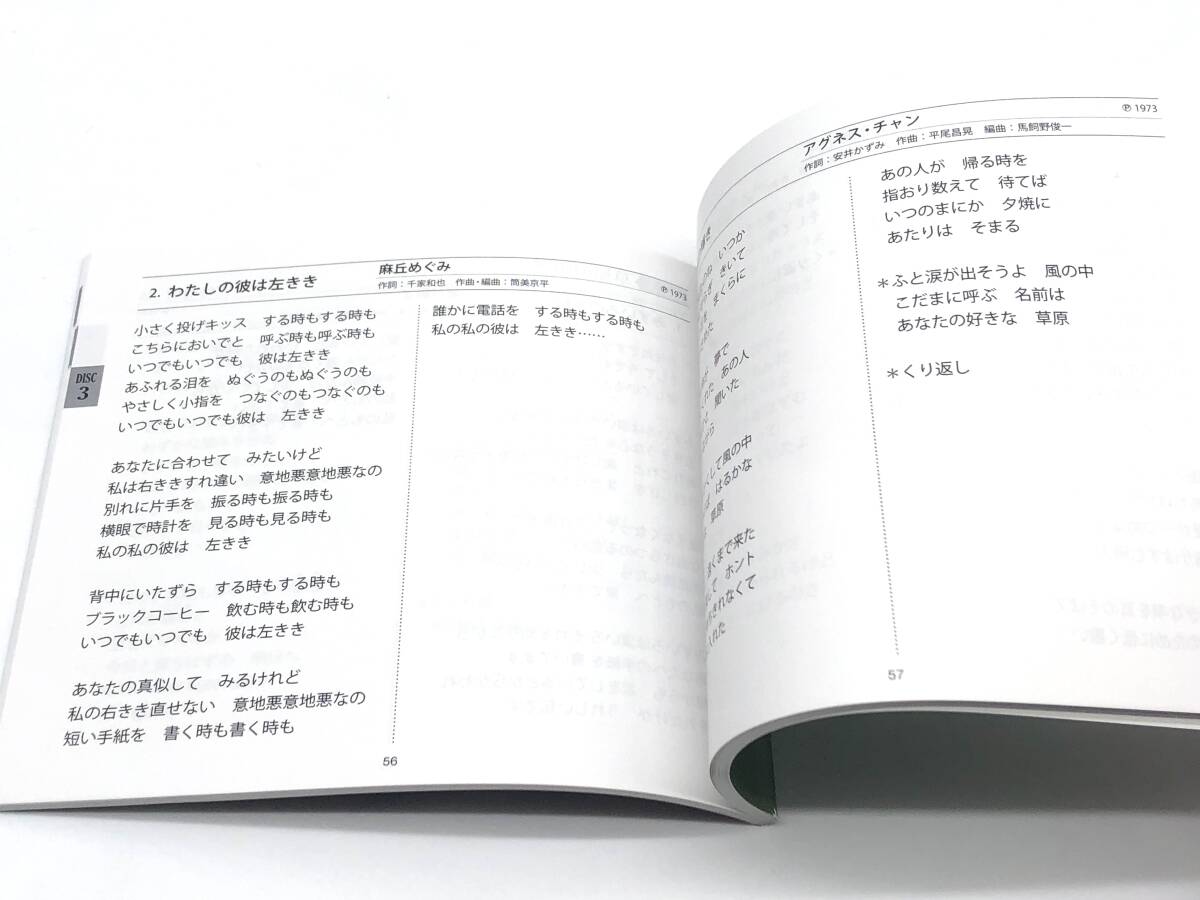 2. わたしの彼は左きき
麻丘めぐみ
作詞:千家和也 作曲・編曲:筒美京平
Ⓟ1973
DISC
3
小さく投げキッス する時もする時も
こちらにおいでと 呼ぶ時も呼ぶ時も
いつでもいつでも 彼は左きき
あふれる泪を ぬぐうのもぬぐうのも
やさしく小指を つなぐのもつなぐのも
いつでもいつでも彼は 左きき
あなたに合わせて みたいけど
私は右ききすれ違い 意地悪意地悪なの
別れに片手を 振る時も振る時も
横眼で時計を 見る時も見る時も
私の私の彼は 左きき
背中にいたずら する時もする時も
ブラックコーヒー 飲む時も飲む時も
いつでもいつでも 彼は左きき
あなたの真似して みるけれど
私の右きき直せない 意地悪意地悪なの
短い手紙を 書く時も書く時も
誰かに電話を する時もする時も
私の私の彼は 左きき……
56
アグネス・チャン
作詞:安井かずみ 作曲:平尾昌晃 編曲:馬飼野俊一
Ⓟ1973
いつか
きいて
まくらに
夢で
あの人
聞いた
して風の中
はるかな
草原
くまで来た
して ホント
きれなくて
くれた
あの人が 帰る時を
指おり数えて 待てば
いつのまにか 夕焼に
あたりは そまる
*ふと涙が出そうよ 風の中
こだまに呼ぶ 名前は
あなたの好きな 草原
*くり返し
57